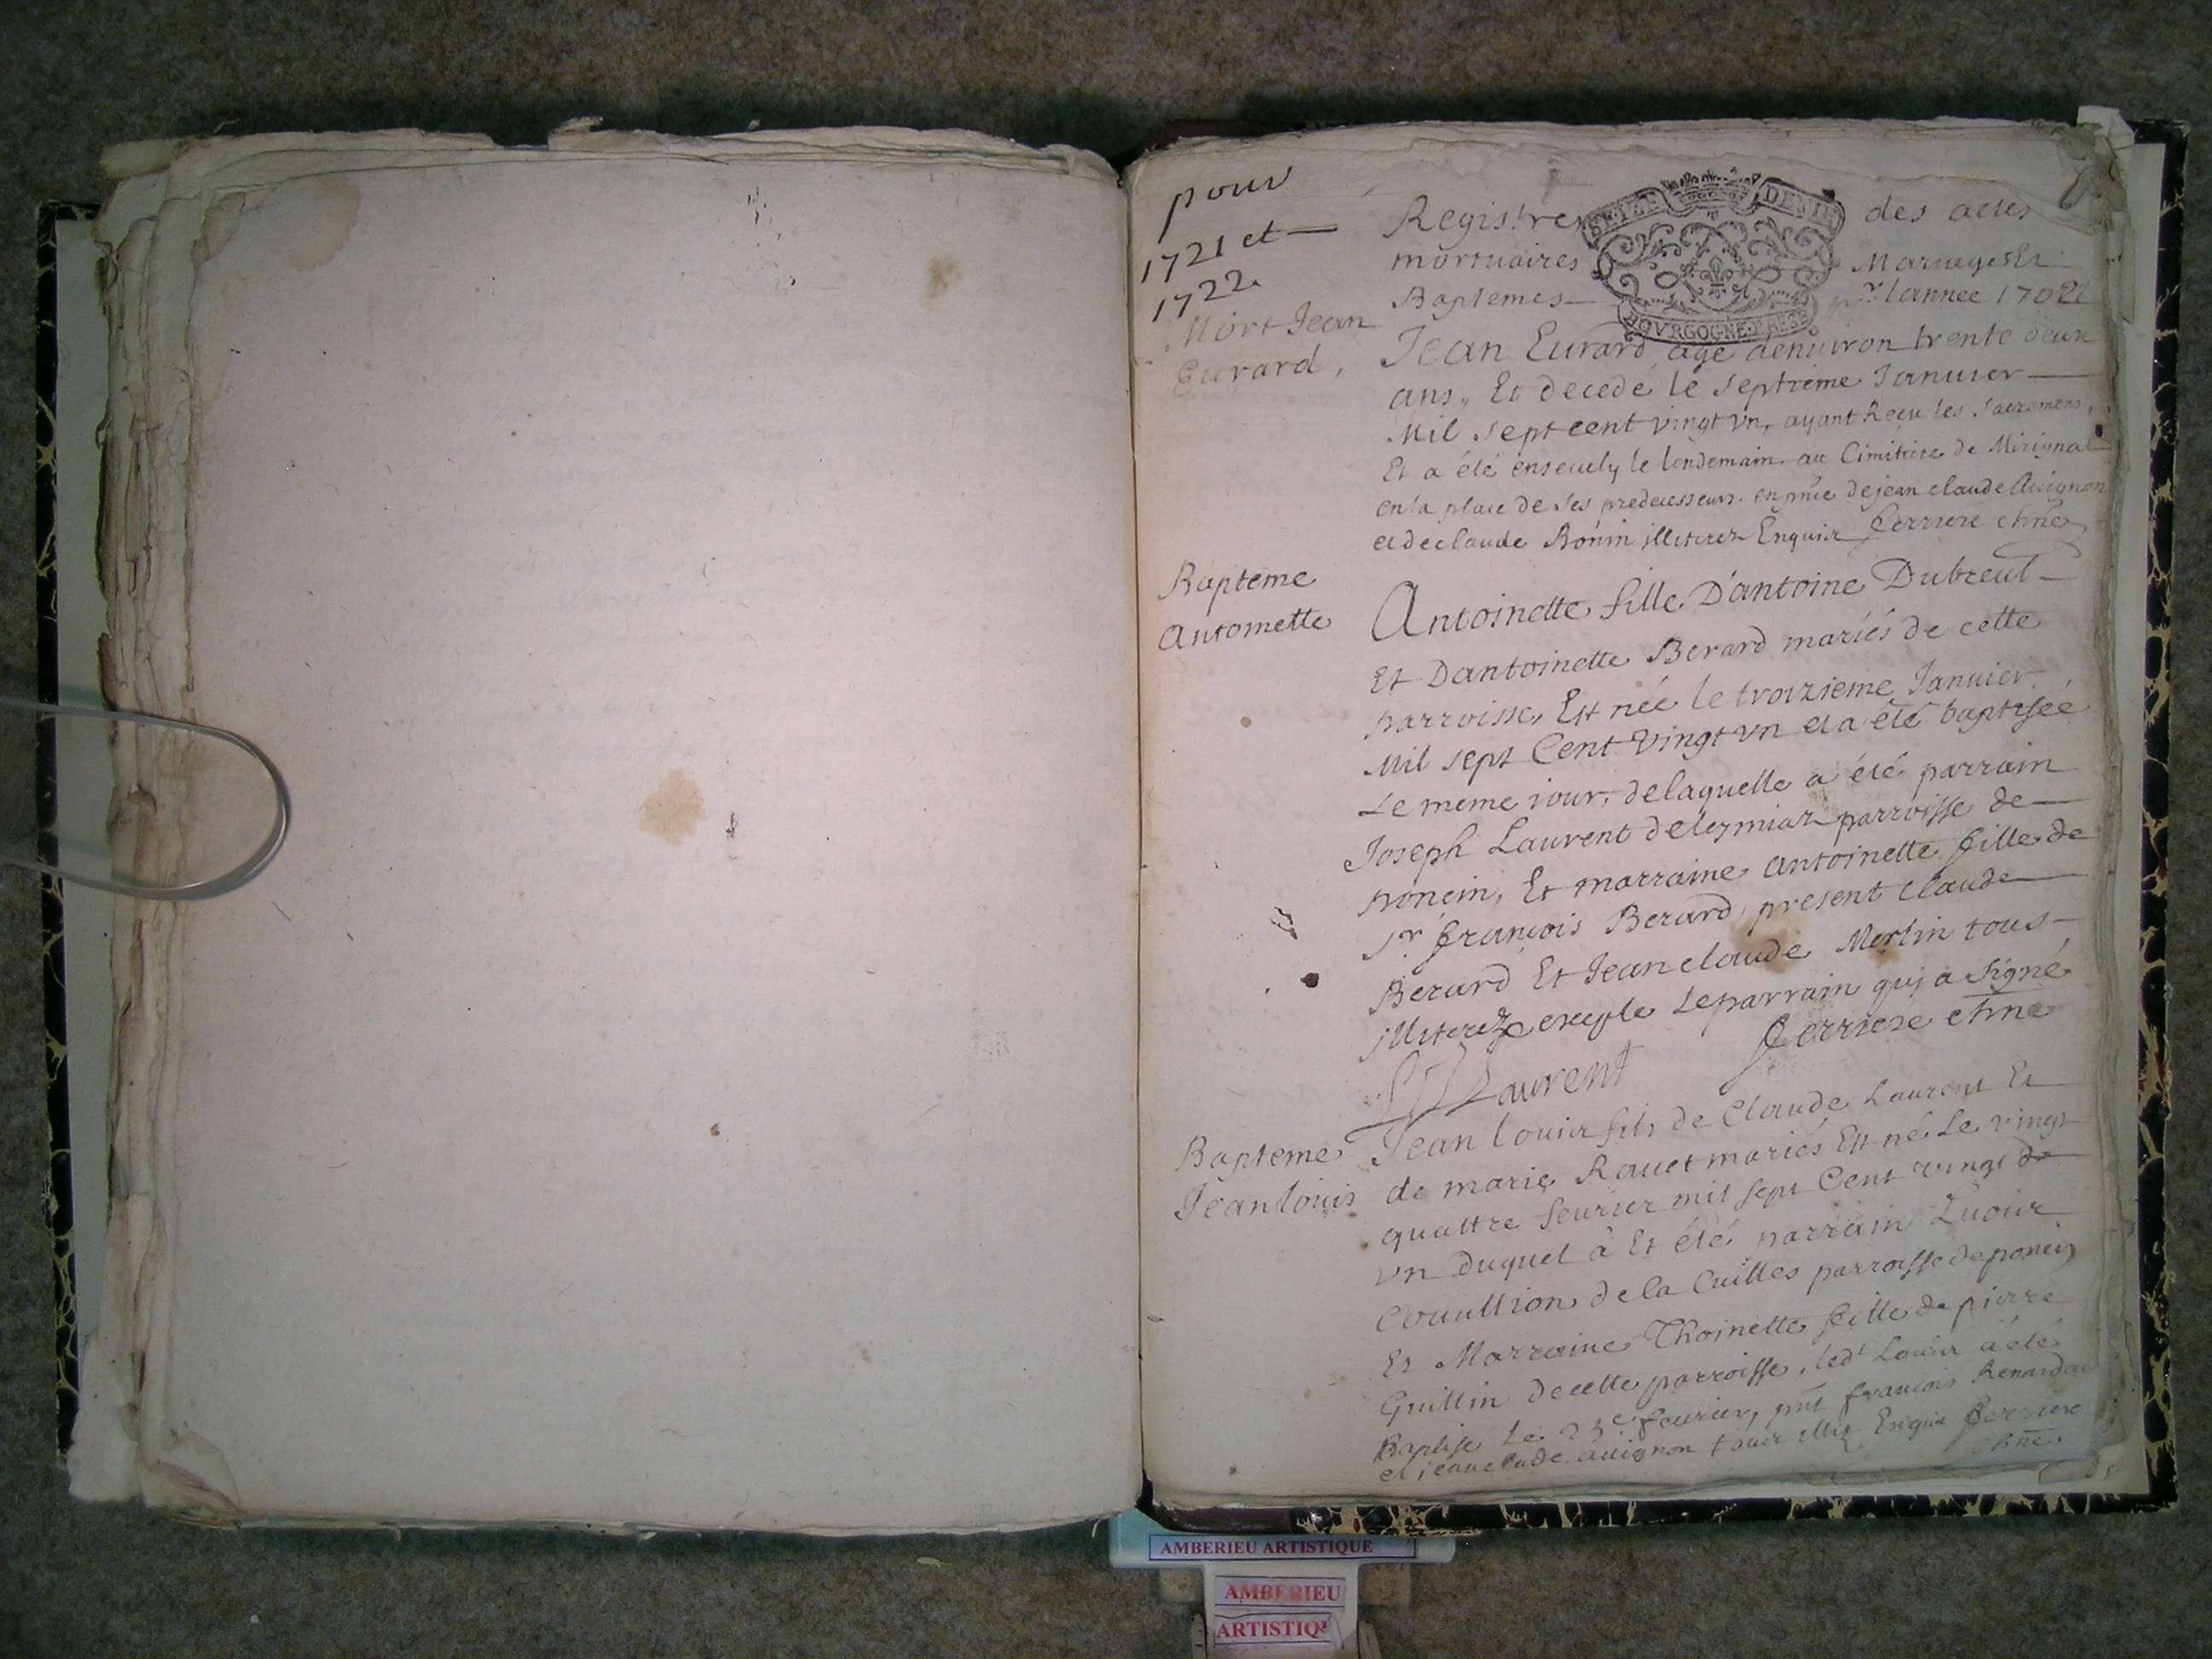 pour
1721 et
1722.
Registre des actes
mortuaires Mariages Et
Baptemes pr. lannee 1721
SIX·IES DENIE
BOVRGOGNE·BRESSE
Mort Jean
Eurard,
Jean Eurard age denuiron trente deux
ans, Et decedé le septieme Januier
Mil sept cent vingt vn, ayant Reçu les sacremens,
Et a été enseuely le londemain au Cimitire de Mirignat
en la place de ses predecesseurs. en pnce de jean claude Auignon
et de claude Bonin illiterez Enquis ferriere
Bapteme
Antoinette
Antoinette fille D'antoine Dubreul
Et Dantoinette Berard mariés de cette
parroisse, Est née le troizieme Januier
Mil sept Cent Vingt vn et a été baptisée
Le meme iour, de laquelle a été parrain
Joseph Laurent de parroisse de
poncin, Et marraine antoinette fille de
sr. françois Berard, present claude
Berard Et Jean claude Merlin tous
illiterez excepte Le parrain qui a signé
Laurent ferriere
Bapteme
Jean louis
Jean louis fils de Claude Laurent Et
de marie Rauet mariés Est né Le vingt
quattre feurier mil sept Cent vingt
vn duquel à Et été parrain Louis
de la Cuilles parroisse de poncin
Et Marraine Thoinette fille de pierre
Guillin de cette parroisse, ledt Louis a été
Baptisé Le 25e feurier, pnt françois
et jean claude auignon tous Enquis ferriere
AMBERIEU ARTISTIQUE
AMBERIEU
ARTISTIQ